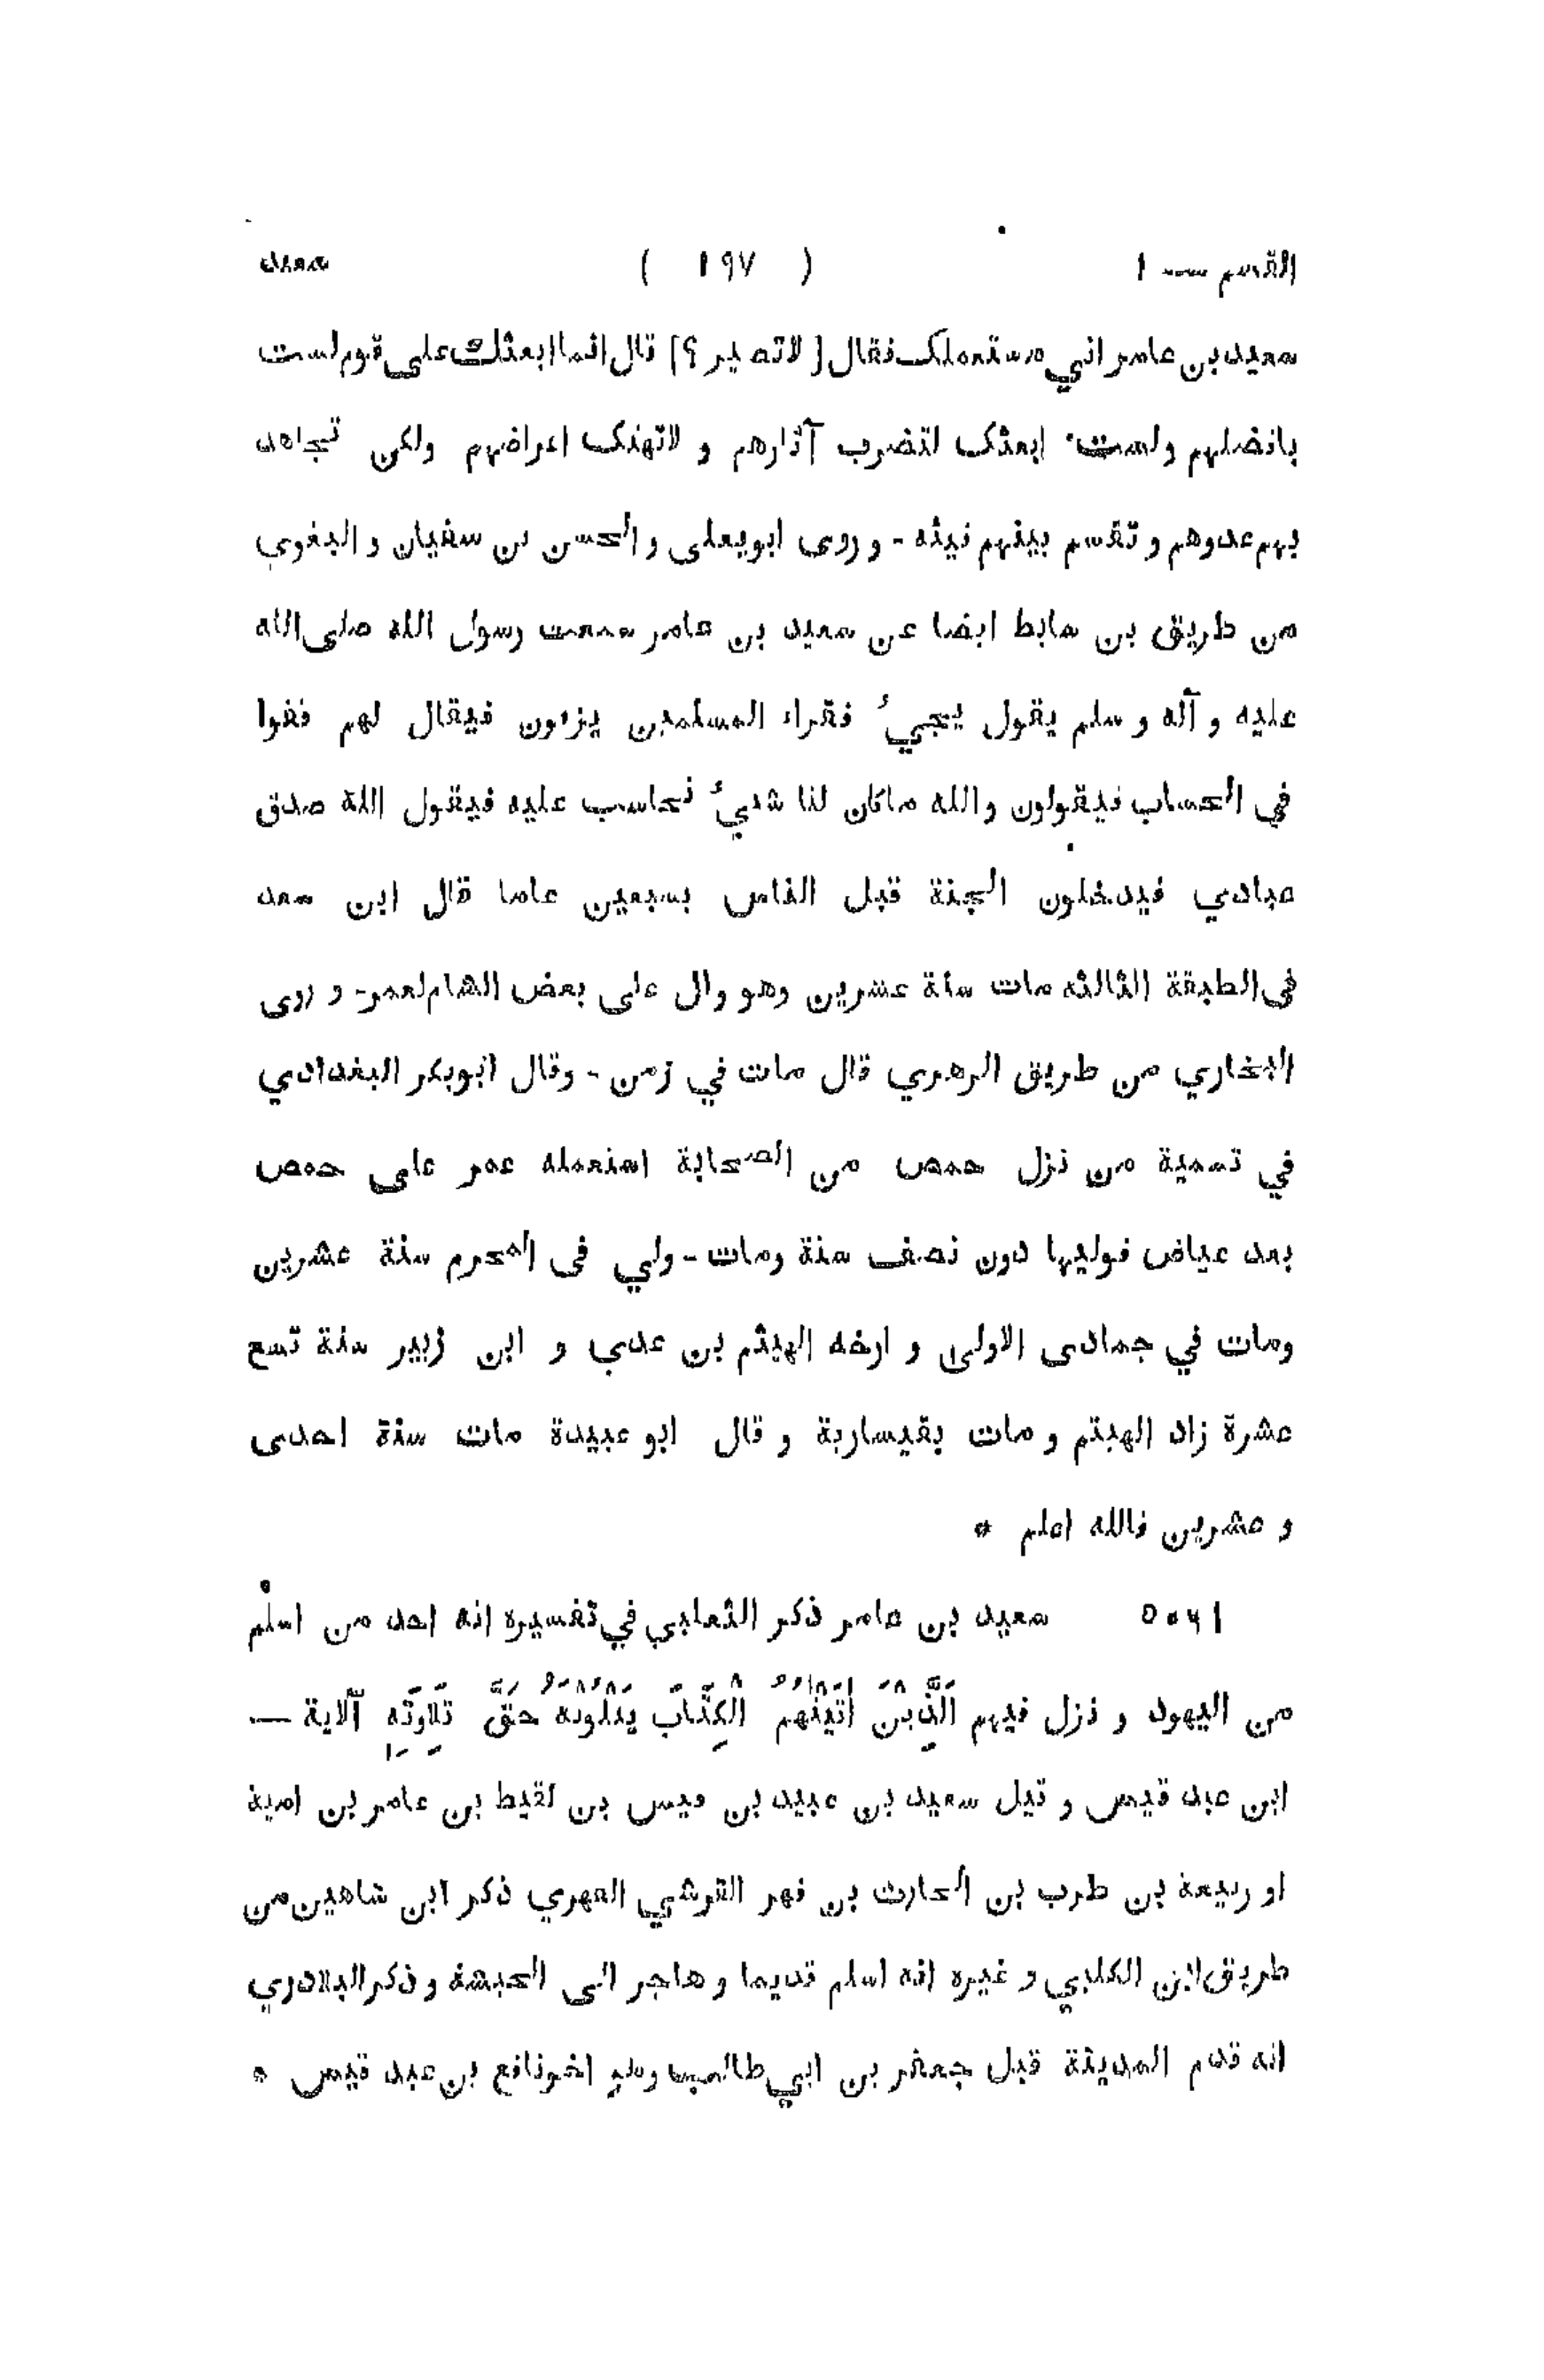 القسم — ١ ( ١٩٧ ) سعيد
سعيد بن عامر اني مستعملك فقال [ لاتصير ؟ ] قال انما ابعثك على قوم لست
بافضلهم ولست ابعثك لتضرب آثارهم و لاتهتك اعراضهم ولكن تجاهد
بهم عدوهم و تقسم بينهم فيئه - و روى ابويعلى و الحسن بن سفيان و البغوي
من طريق بن سابط ايضا عن سعيد بن عامر سمعت رسول الله صلى الله
عليه و آله و سلم يقول يجيئ فقراء المسلمين يزفون فيقال لهم قفوا
في الحساب فيقولون والله ماكان لنا شيئ نحاسب عليه فيقول الله صدق
عبادي فيدخلون الجنة قبل الناس بسبعين عاما قال ابن سعد
فى الطبقة الثالثه مات سنة عشرين وهو وال على بعض الشام لعمر - و روى
البخاري من طريق الزهري قال مات في زمن - وقال ابوبكر البغدادي
في تسمية من نزل حمص من الصحابة استعمله عمر على حمص
بعد عياض فوليها دون نصف سنة ومات - ولي فى المحرم سنة عشرين
ومات في جمادى الاولى و ارخه الهيثم بن عدي و ابن زبير سنة تسع
عشرة زاد الهيثم و مات بقيسارية و قال ابو عبيدة مات سنة احدى
و عشرين فالله اعلم *
سعيد بن عامر ذكر الثعلبي في تفسيره انه احد من اسلم
من اليهود و نزل فيهم اَلَّذِيْنَ اٰتَيْنٰهُمُ الْكِتَابَ يَتْلُوْنَهٗ حَقَّ تِلَاوَتِهٖ آلاية —
ابن عبد قيس و قيل سعيد بن عبيد بن قيس بن لقيط بن عامر بن امية
او ربيعة بن ظرب بن الحارث بن فهر القرشي الفهري ذكر ابن شاهين من
طريق ابن الكلبي و غيره انه اسلم قديما و هاجر الى الحبشة و ذكر البلاذري
انه قدم المدينة قبل جعفر بن ابي طالب وهو اخونافع بن عبد قيس *